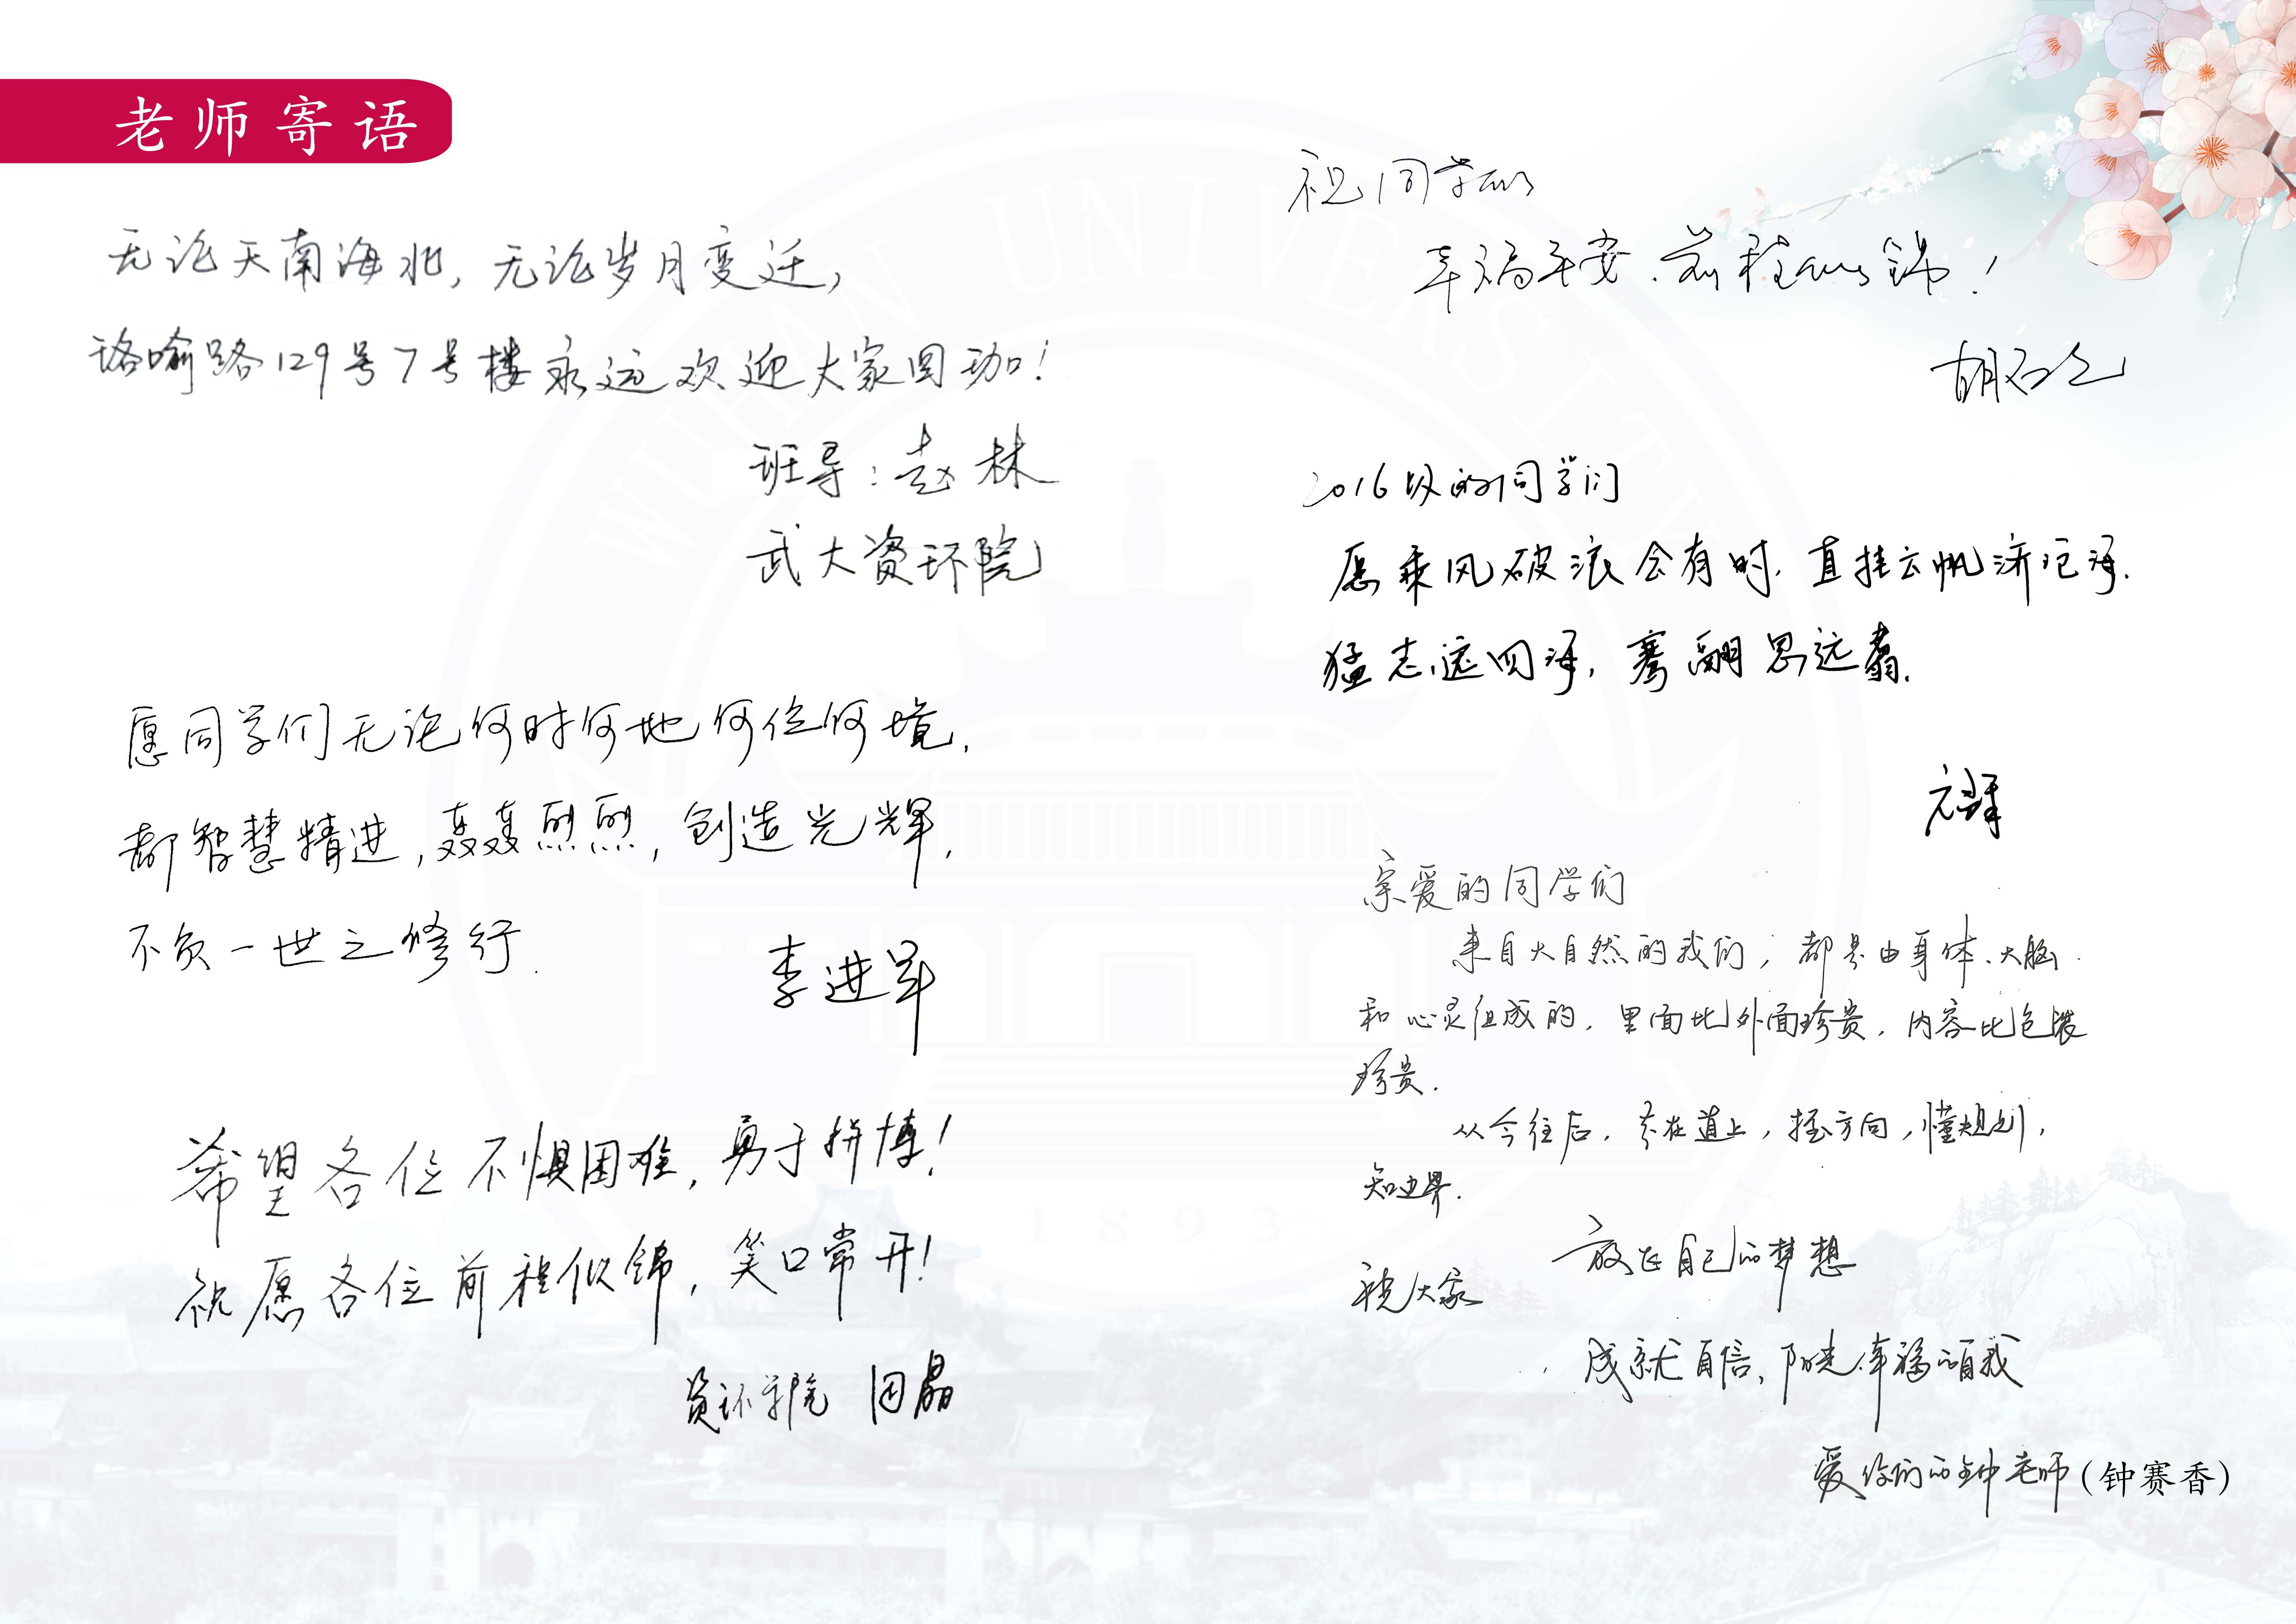 老师寄语
无论天南海北，无论岁月变迁，
珞喻路129号7号楼永远欢迎大家回珈！
班导：赵林
武大资环院
愿同学们无论何时何地何位何境，
都智慧精进，轰轰烈烈，创造光辉，
不负一世之修行．
李进军
希望各位不惧困难，勇于拼搏！
祝愿各位前程似锦，笑口常开！
资环学院 田晶
祝同学们
幸福平安．前程似锦！
胡石元
2016级的同学们
愿乘风破浪会有时．直挂云帆济沧海．
猛志逸四海，骞翮思远翥．
亲爱的同学们
来自大自然的我们，都是由身体、大脑
和心灵组成的，里面比外面珍贵，内容比包装
珍贵．
从今往后，走在道上，握方向，懂规划，
知边界．
祝大家
放飞自己的梦想
成就自信、阳光、幸福的自我
爱你们的钟老师（钟赛香）
WUHAN UNIVERSITY
1893